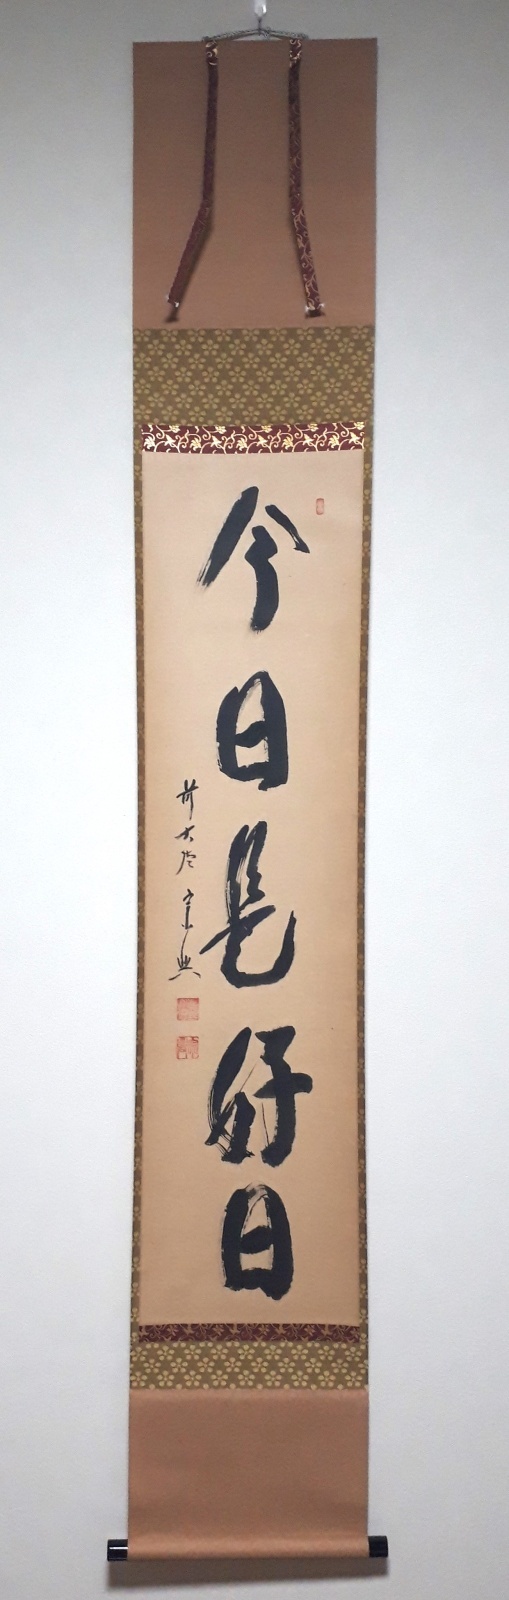 今日是好日
前大徳 宗典